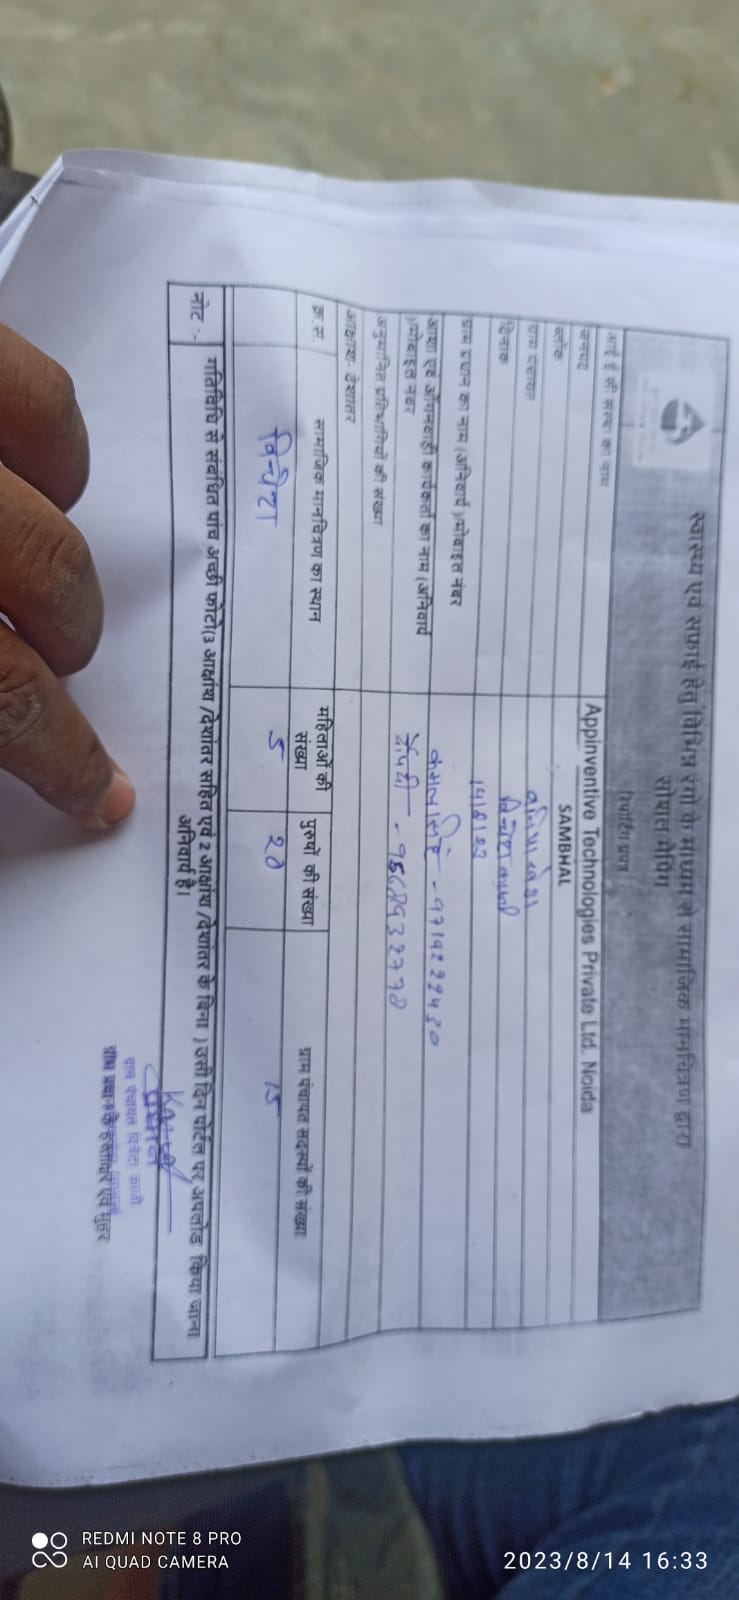 स्वास्थ्य एवं सफाई हेतु विभिन्न रंगो के माध्यम से सामाजिक मानचित्रण द्वारा
सोशल मैपिंग
रिपोर्टिंग प्रपत्र
आई ई सी संस्था का नाम Appinventive Technologies Private Ltd. Noida
जनपद SAMBHAL
ब्लॉक
ग्राम पंचायत
दिनांक 14/8/23
ग्राम प्रधान का नाम (अनिवार्य )/मोबाइल नंबर
आशा एवं आँगनवाड़ी कार्यकर्ता का नाम (अनिवार्य
)/मोबाइल नंबर
अनुमानित प्रतिभागियों की संख्या
अक्षांश- देशांतर
क्र.सं सामाजिक मानचित्रण का स्थान महिलाओं की संख्या पुरुषों की संख्या ग्राम पंचायत सदस्यों की संख्या
विचेटा 5 20 15
नोट :- गतिविधि से संबंधित पांच अच्छी फोटो(3 अक्षांश /देशांतर सहित एवं 2 अक्षांश /देशांतर के बिना ) उसी दिन पोर्टल पर अपलोड किया जाना
अनिवार्य है।
ग्राम पंचायत विचेटा काजी
REDMI NOTE 8 PRO
AI QUAD CAMERA
2023/8/14 16:33